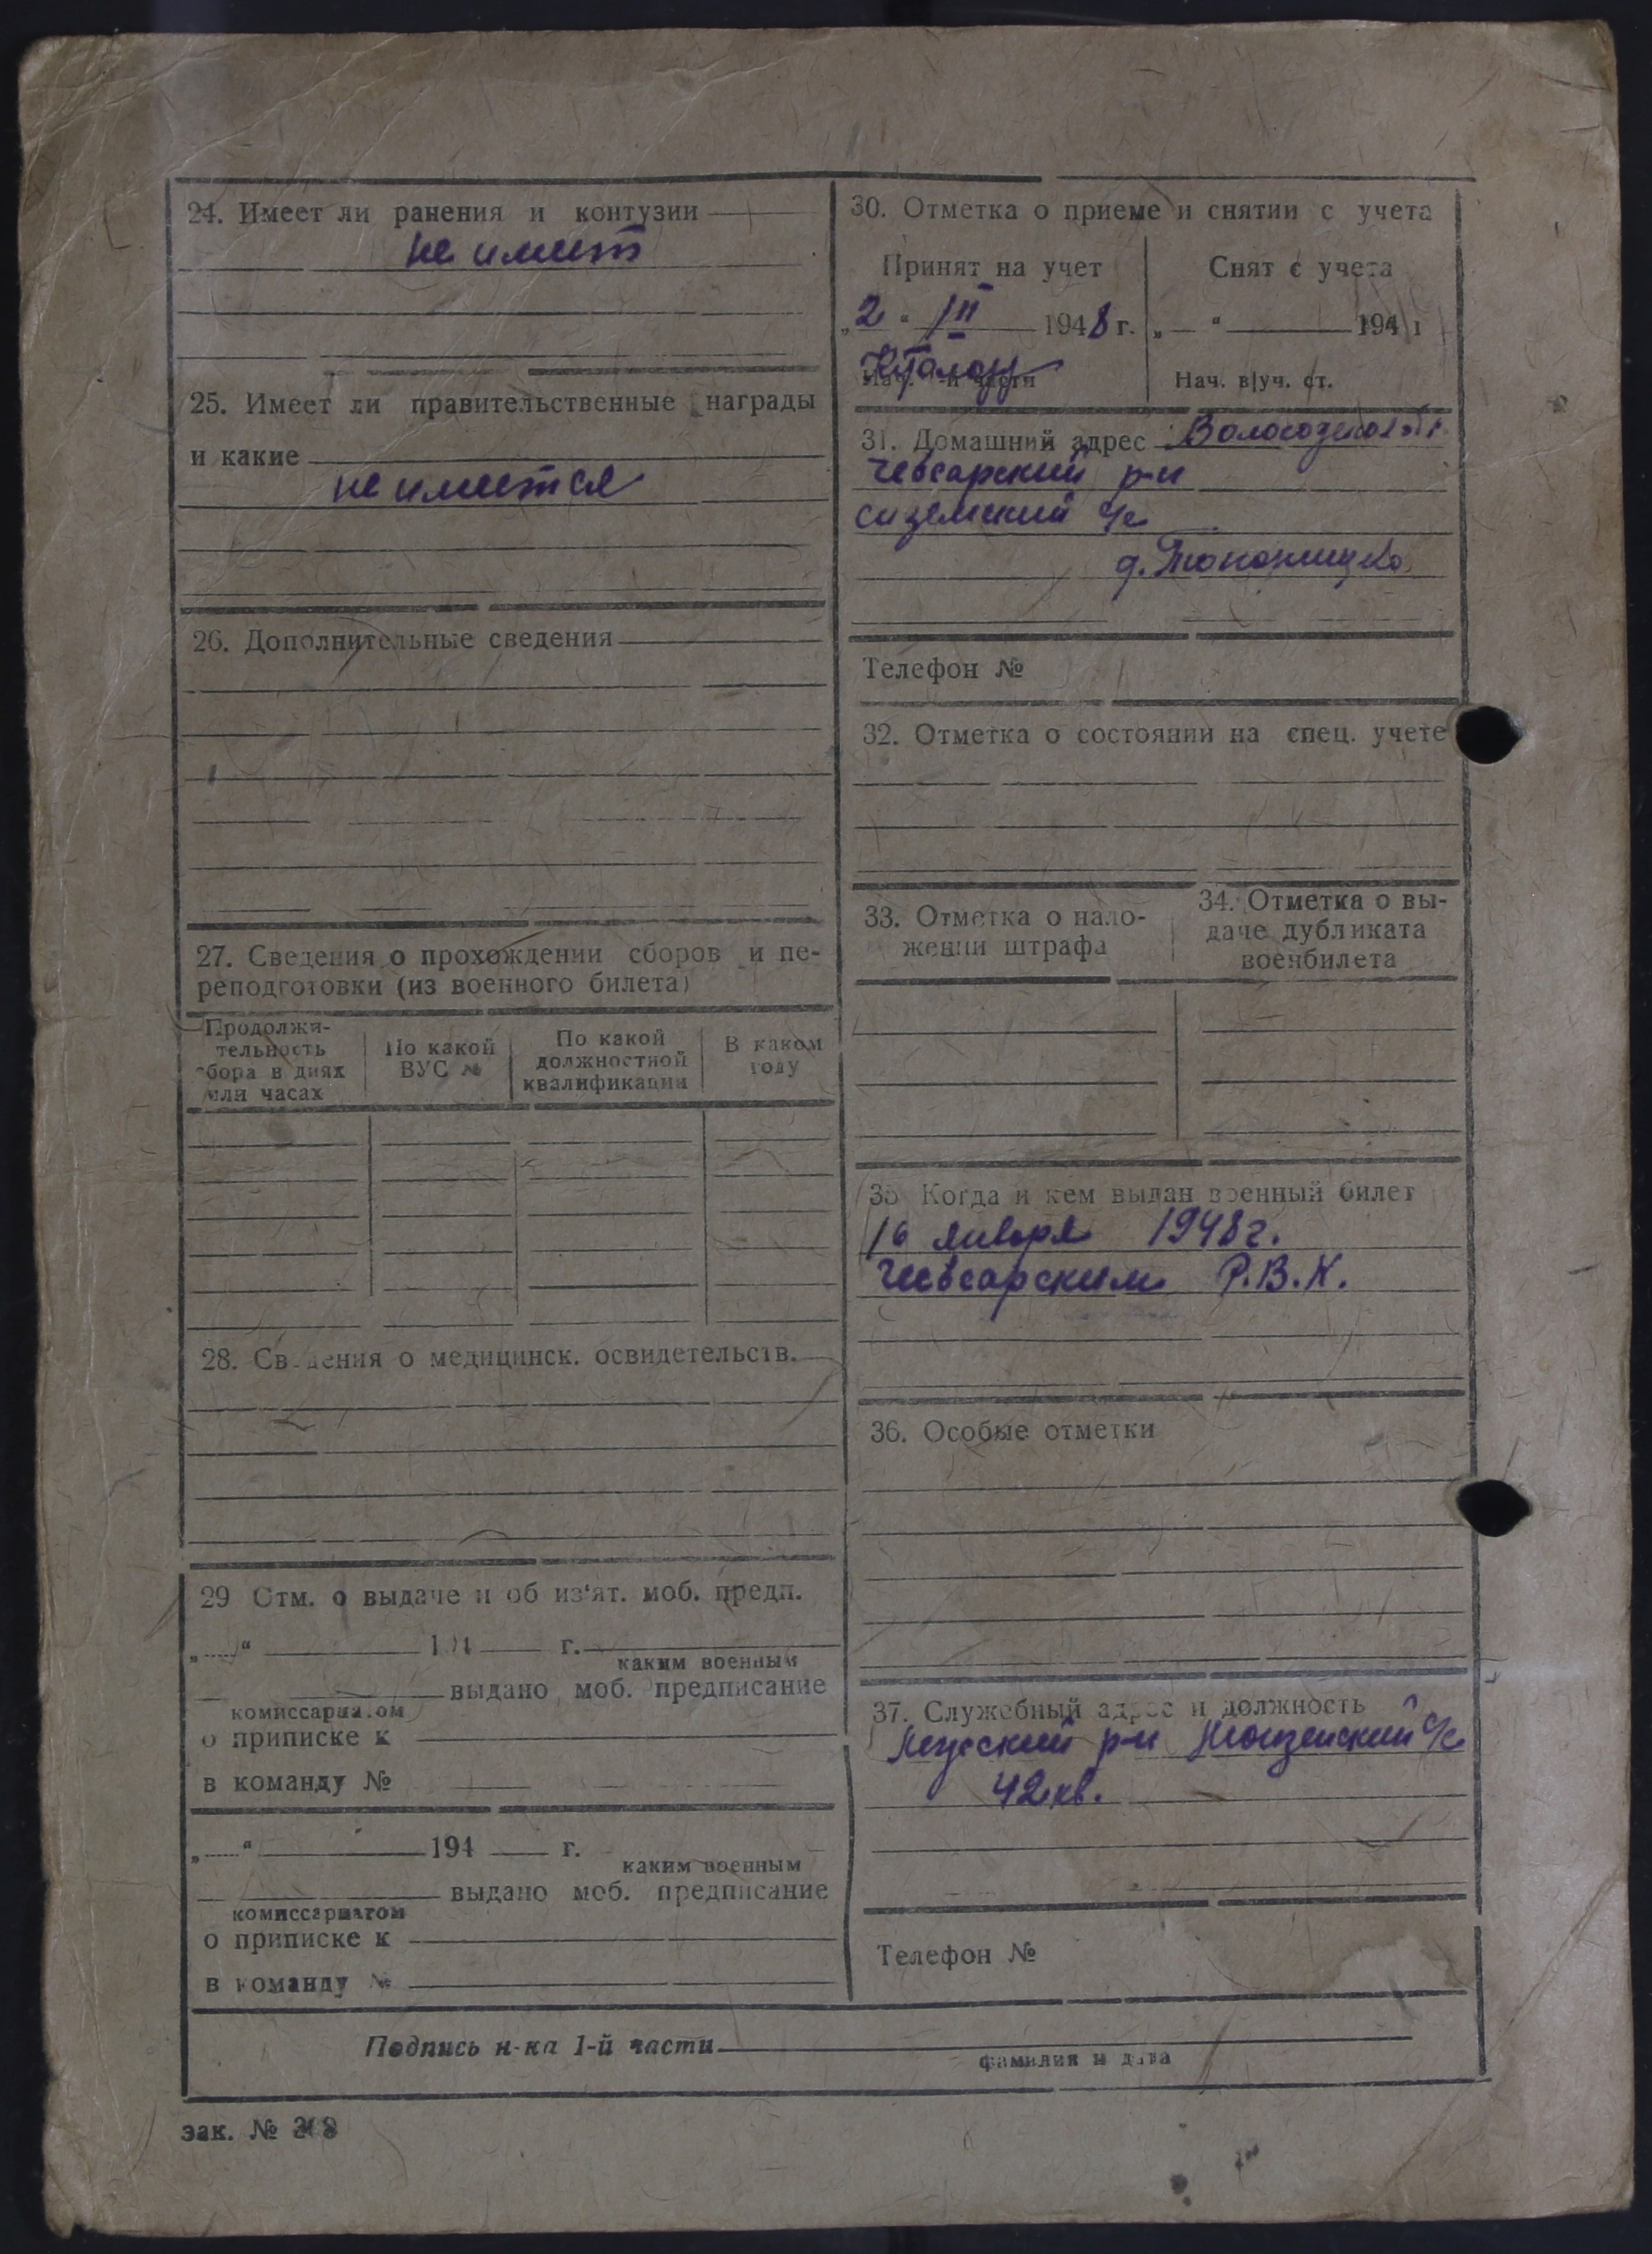 24. Имеет ли ранения и контузии
не имеет
25. Имеет ли правительственные награды
и какие
не имеется
26. Дополнительные сведения
27. Сведения о прохождении сборов и пе-
реподготовки (из военного билета)
Продолжи-
тельность
сбора в днях
или часах
По какой
ВУС №
По какой
должностной
квалификации
В каком
году
28. Сведения о медицинск. освидетельств.
29 Отм. о выдаче и об из'ят. моб. предп.
„ “ 194 г.
каким военным
выдано моб. предписание
комиссариатом
о приписке к
в команду №
„ “ 194 г.
каким военным
выдано моб. предписание
комиссариатом
о приписке к
в команду №
30. Отметка о приеме и снятии с учета
Принят на учет
„2“ III 1948 г.
Нач. -й части
Снят с учета
„ “ 194 г
Нач. в/уч. ст.
31. Домашний адрес
Чебсарский р-н
Сиземский с/с
д.
Телефон №
32. Отметка о состоянии на спец. учете
33. Отметка о нало-
жении штрафа
34. Отметка о вы-
даче дубликата
военбилета
35 Когда и кем выдан военный билет
16 января 1948 г.
Чебсарским Р.В.К.
36. Особые отметки
37. Служебный адрес и должность
р-н с/с
42 кв.
Телефон №
Подпись н-ка 1-й части
фамилия и дата
зак. №